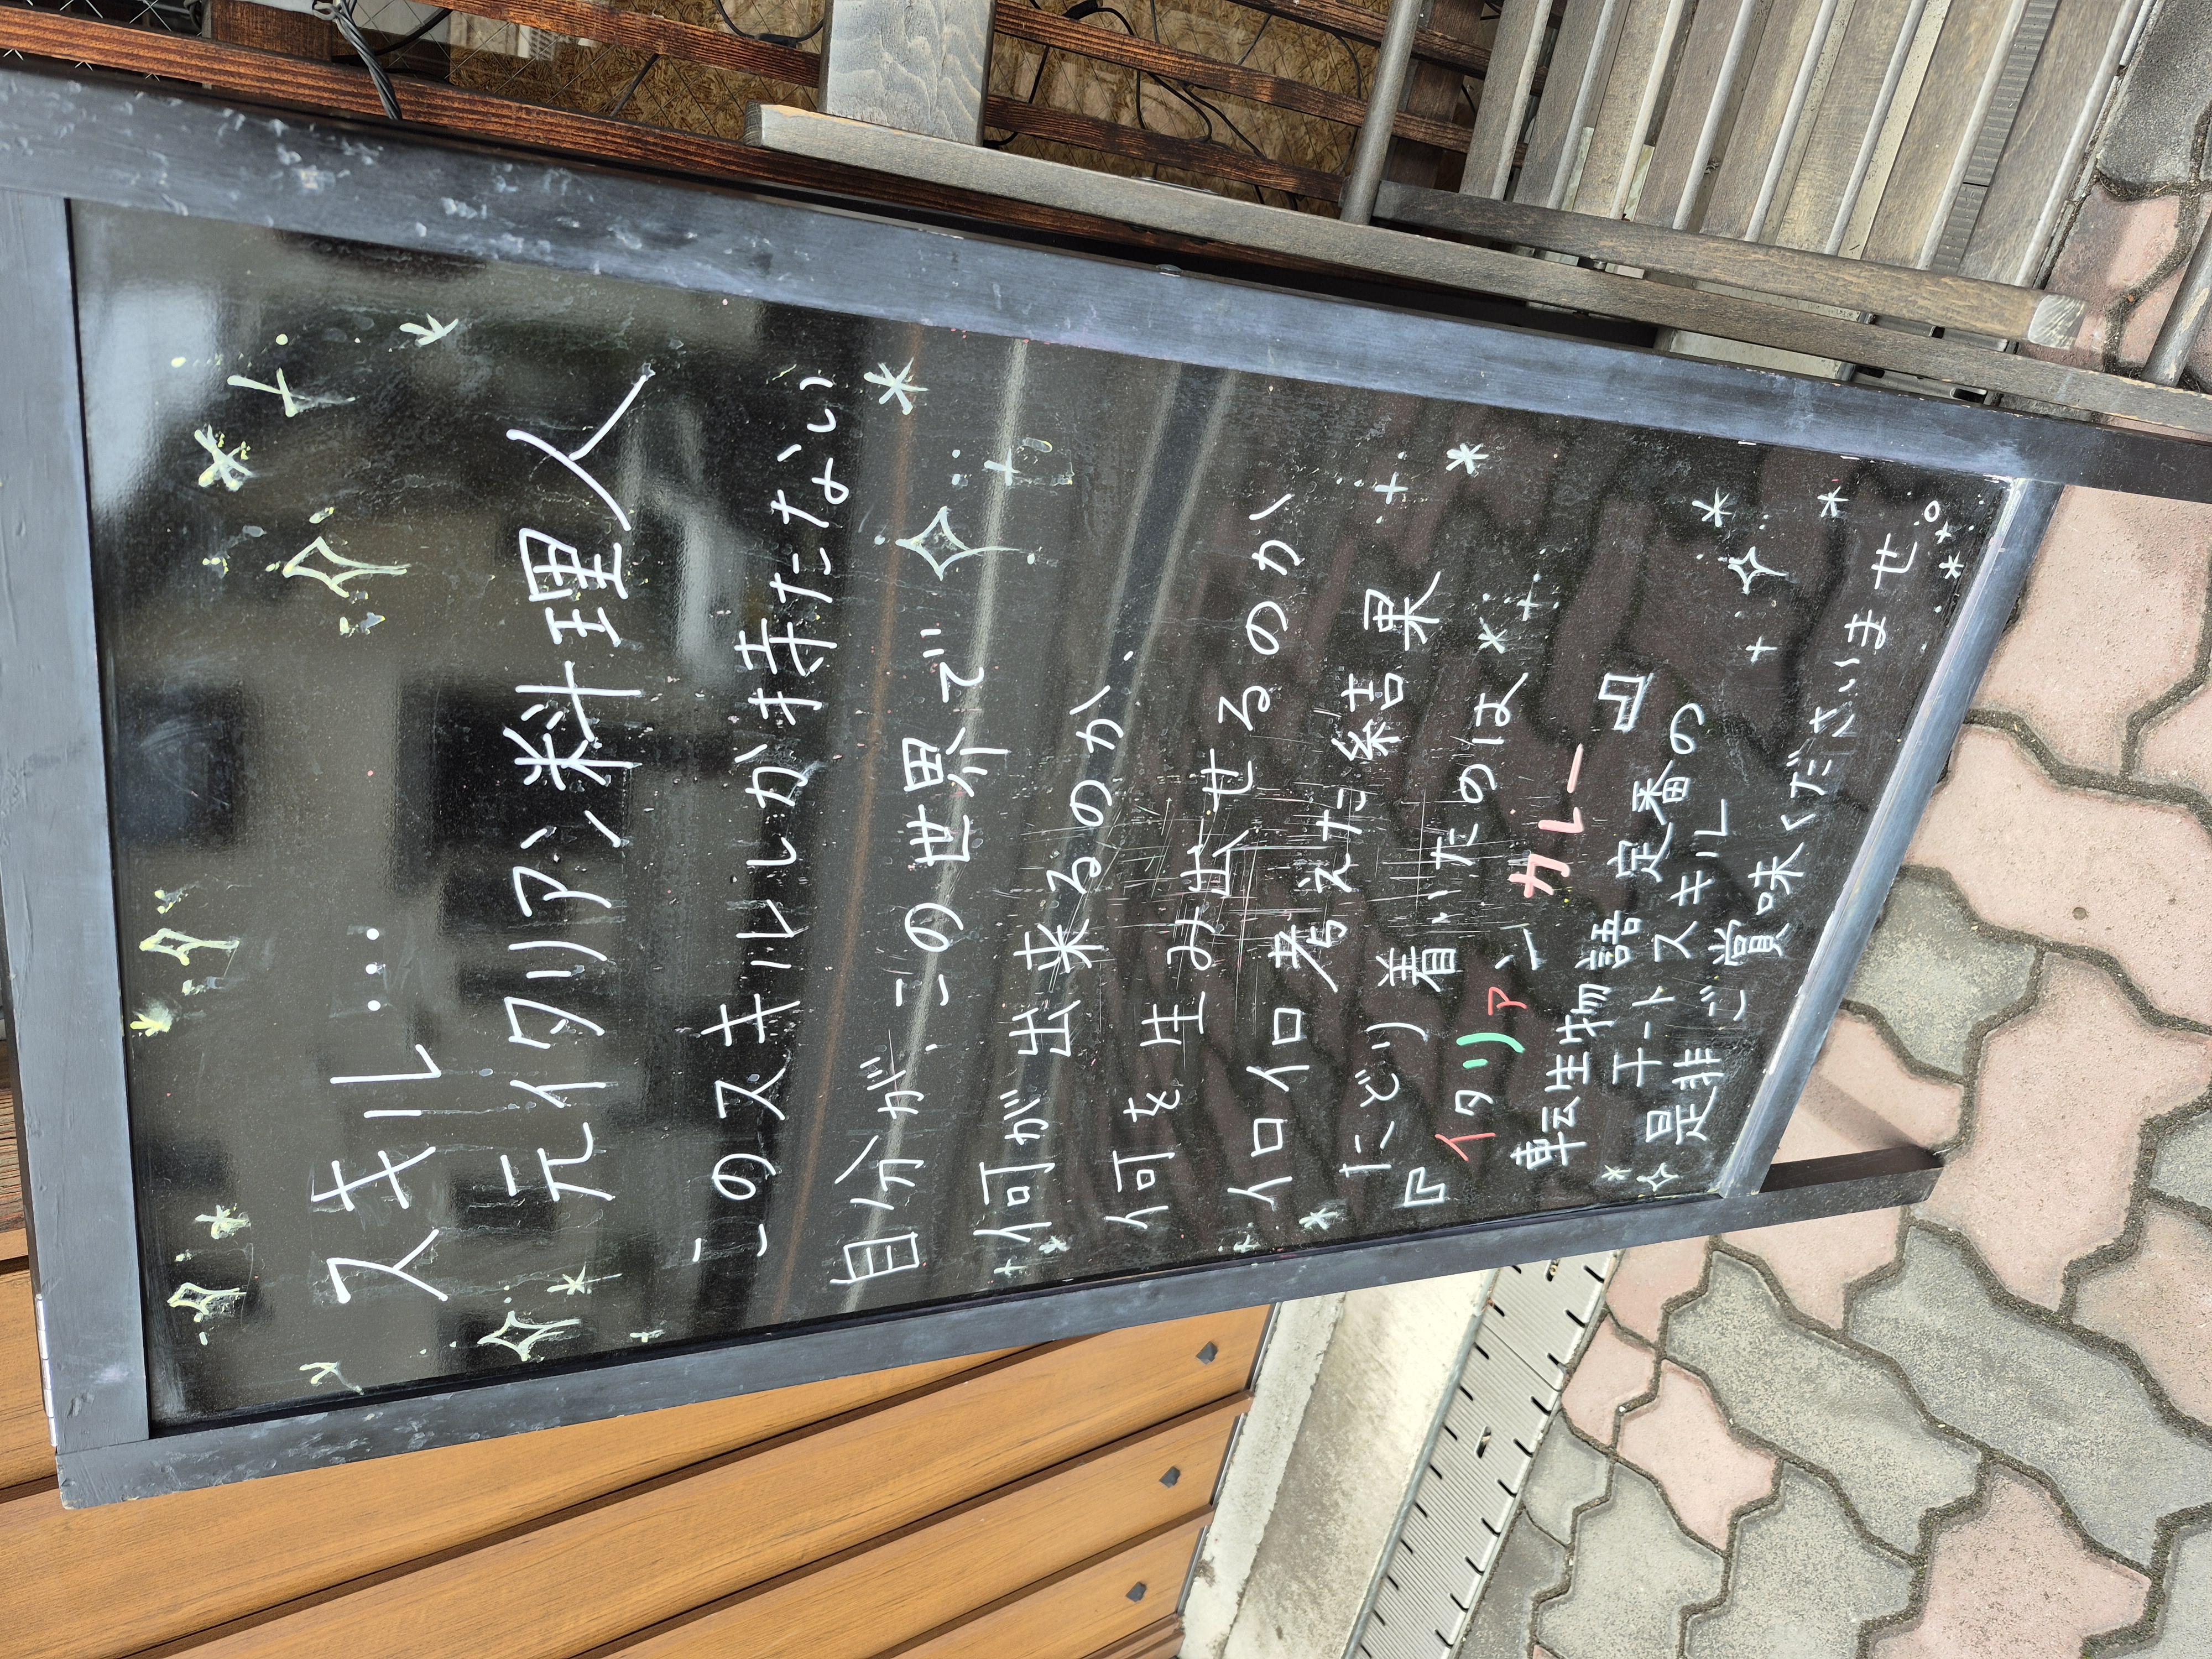 スキル…
元イタリアン料理人
このスキルしか持たない
自分が、この世界で
何が出来るのか、
何を生み出せるのか
イロイロ考えた結果
たどり着いたのは
『イタリアンカレー』
転生物語定番の
チートスキル
是非ご賞味くださいませ。